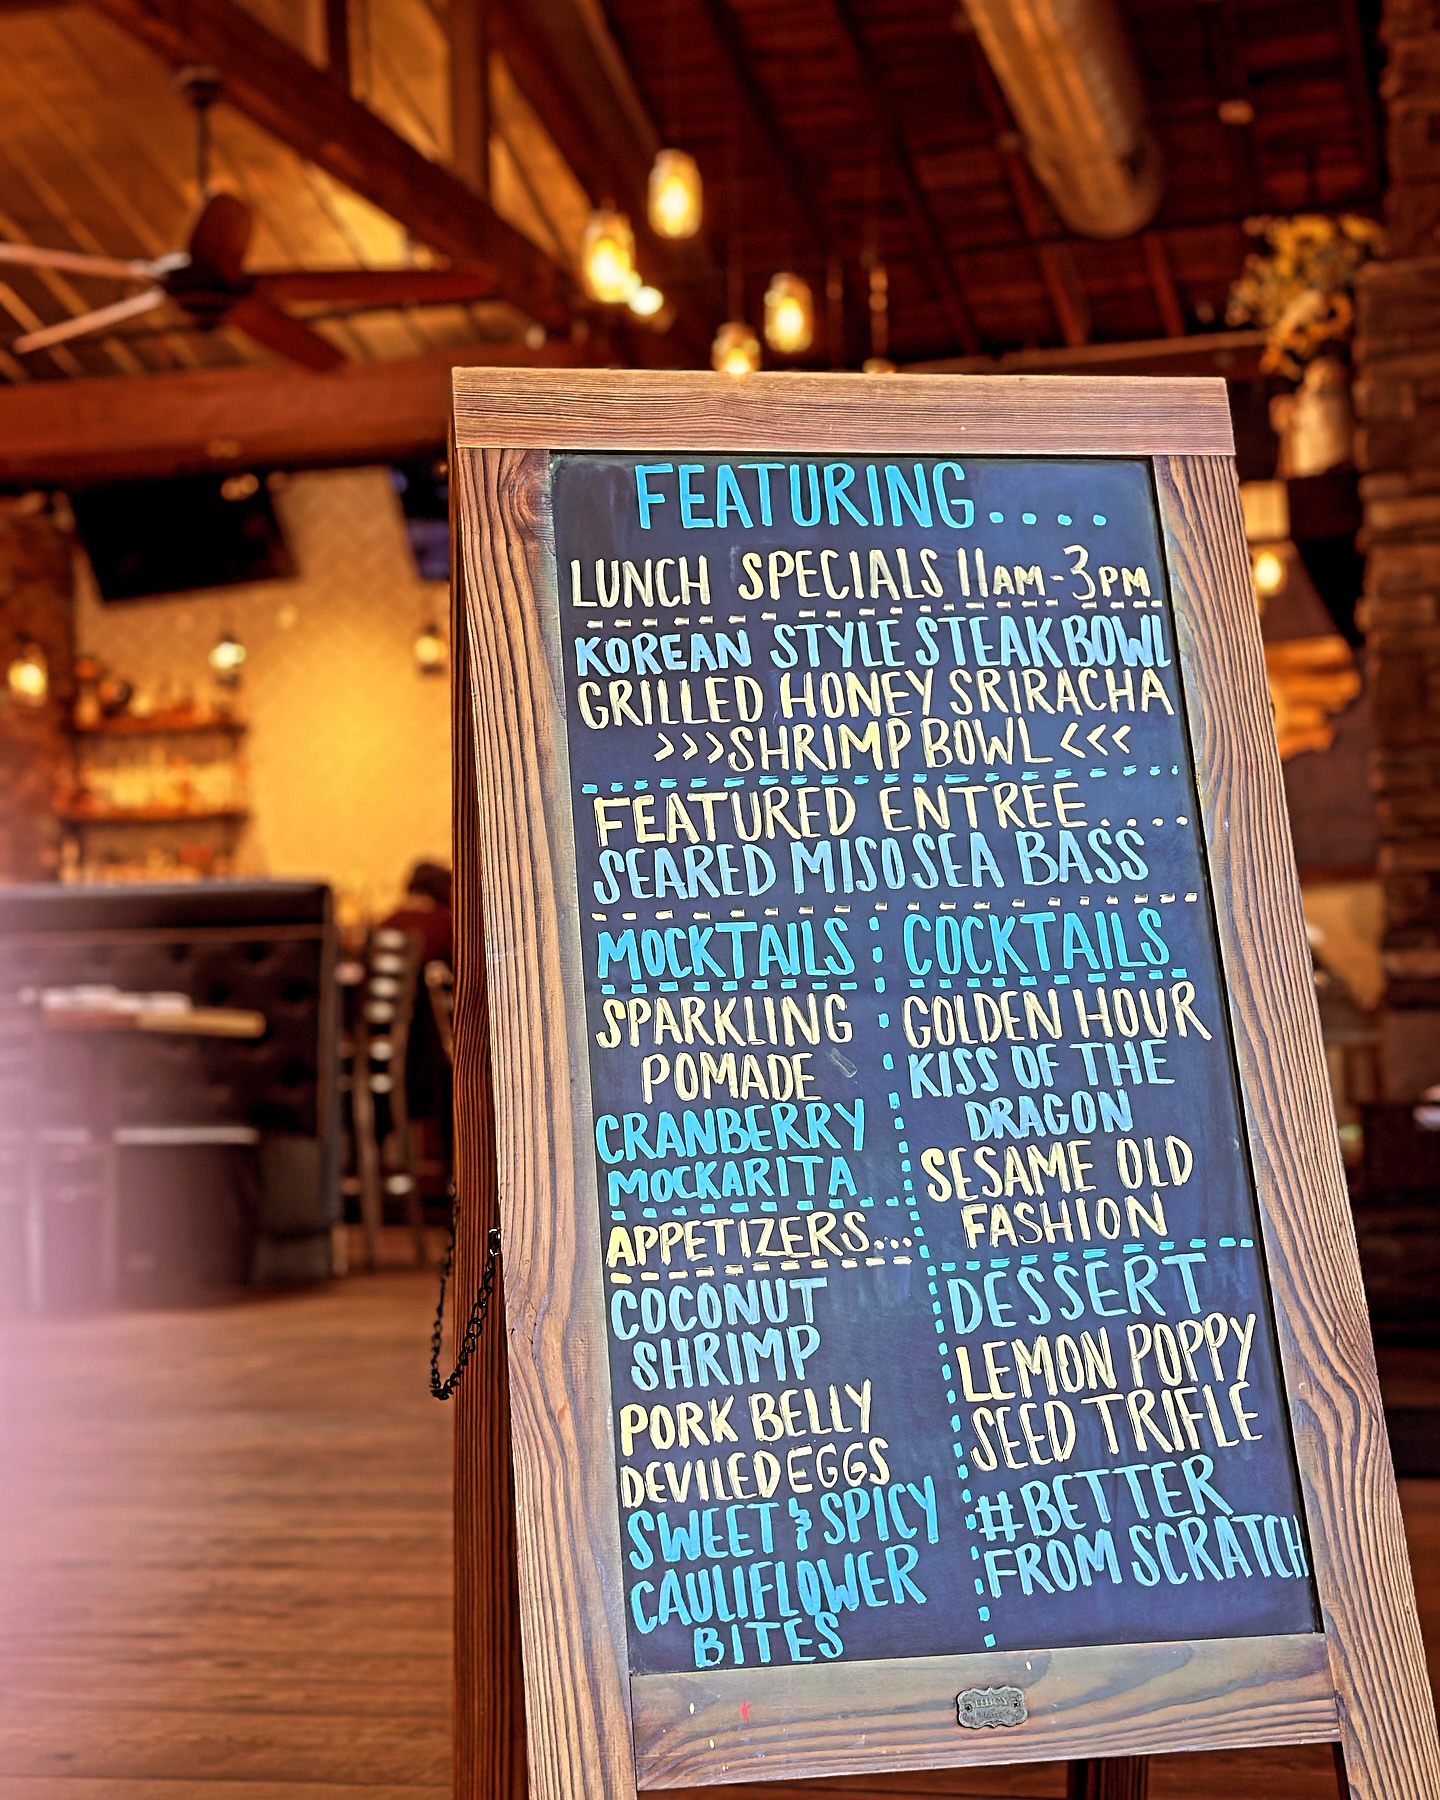 FEATURING....
LUNCH SPECIALS 11AM-3PM
KOREAN STYLE STEAK BOWL
GRILLED HONEY SRIRACHA
>>>SHRIMP BOWL<<<
FEATURED ENTREE....
SEARED MISO SEA BASS
MOCKTAILS
SPARKLING
POMADE
CRANBERRY
MOCKARITA
APPETIZERS...
COCONUT
SHRIMP
PORK BELLY
DEVILED EGGS
SWEET & SPICY
CAULIFLOWER
BITES
COCKTAILS
GOLDEN HOUR
KISS OF THE
DRAGON
SESAME OLD
FASHION
DESSERT
LEMON POPPY
SEED TRIFLE
#BETTER
FROM SCRATCH